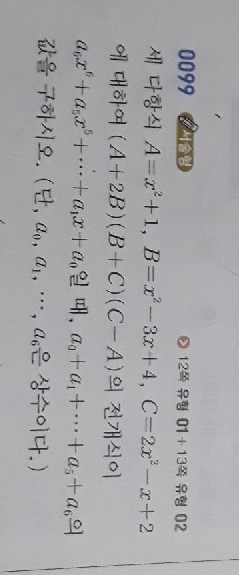 0099 서술형 12쪽 유형 01 + 13쪽 유형 02
세 다항식 A=x²+1, B=x²-3x+4, C=2x²-x+2
에 대하여 (A+2B)(B+C)(C-A)의 전개식이
a₆x⁶+a₅x⁵+⋯+a₁x+a₀일 때, a₀+a₁+⋯+a₅+a₆의
값을 구하시오. (단, a₀, a₁, ⋯, a₆은 상수이다.)